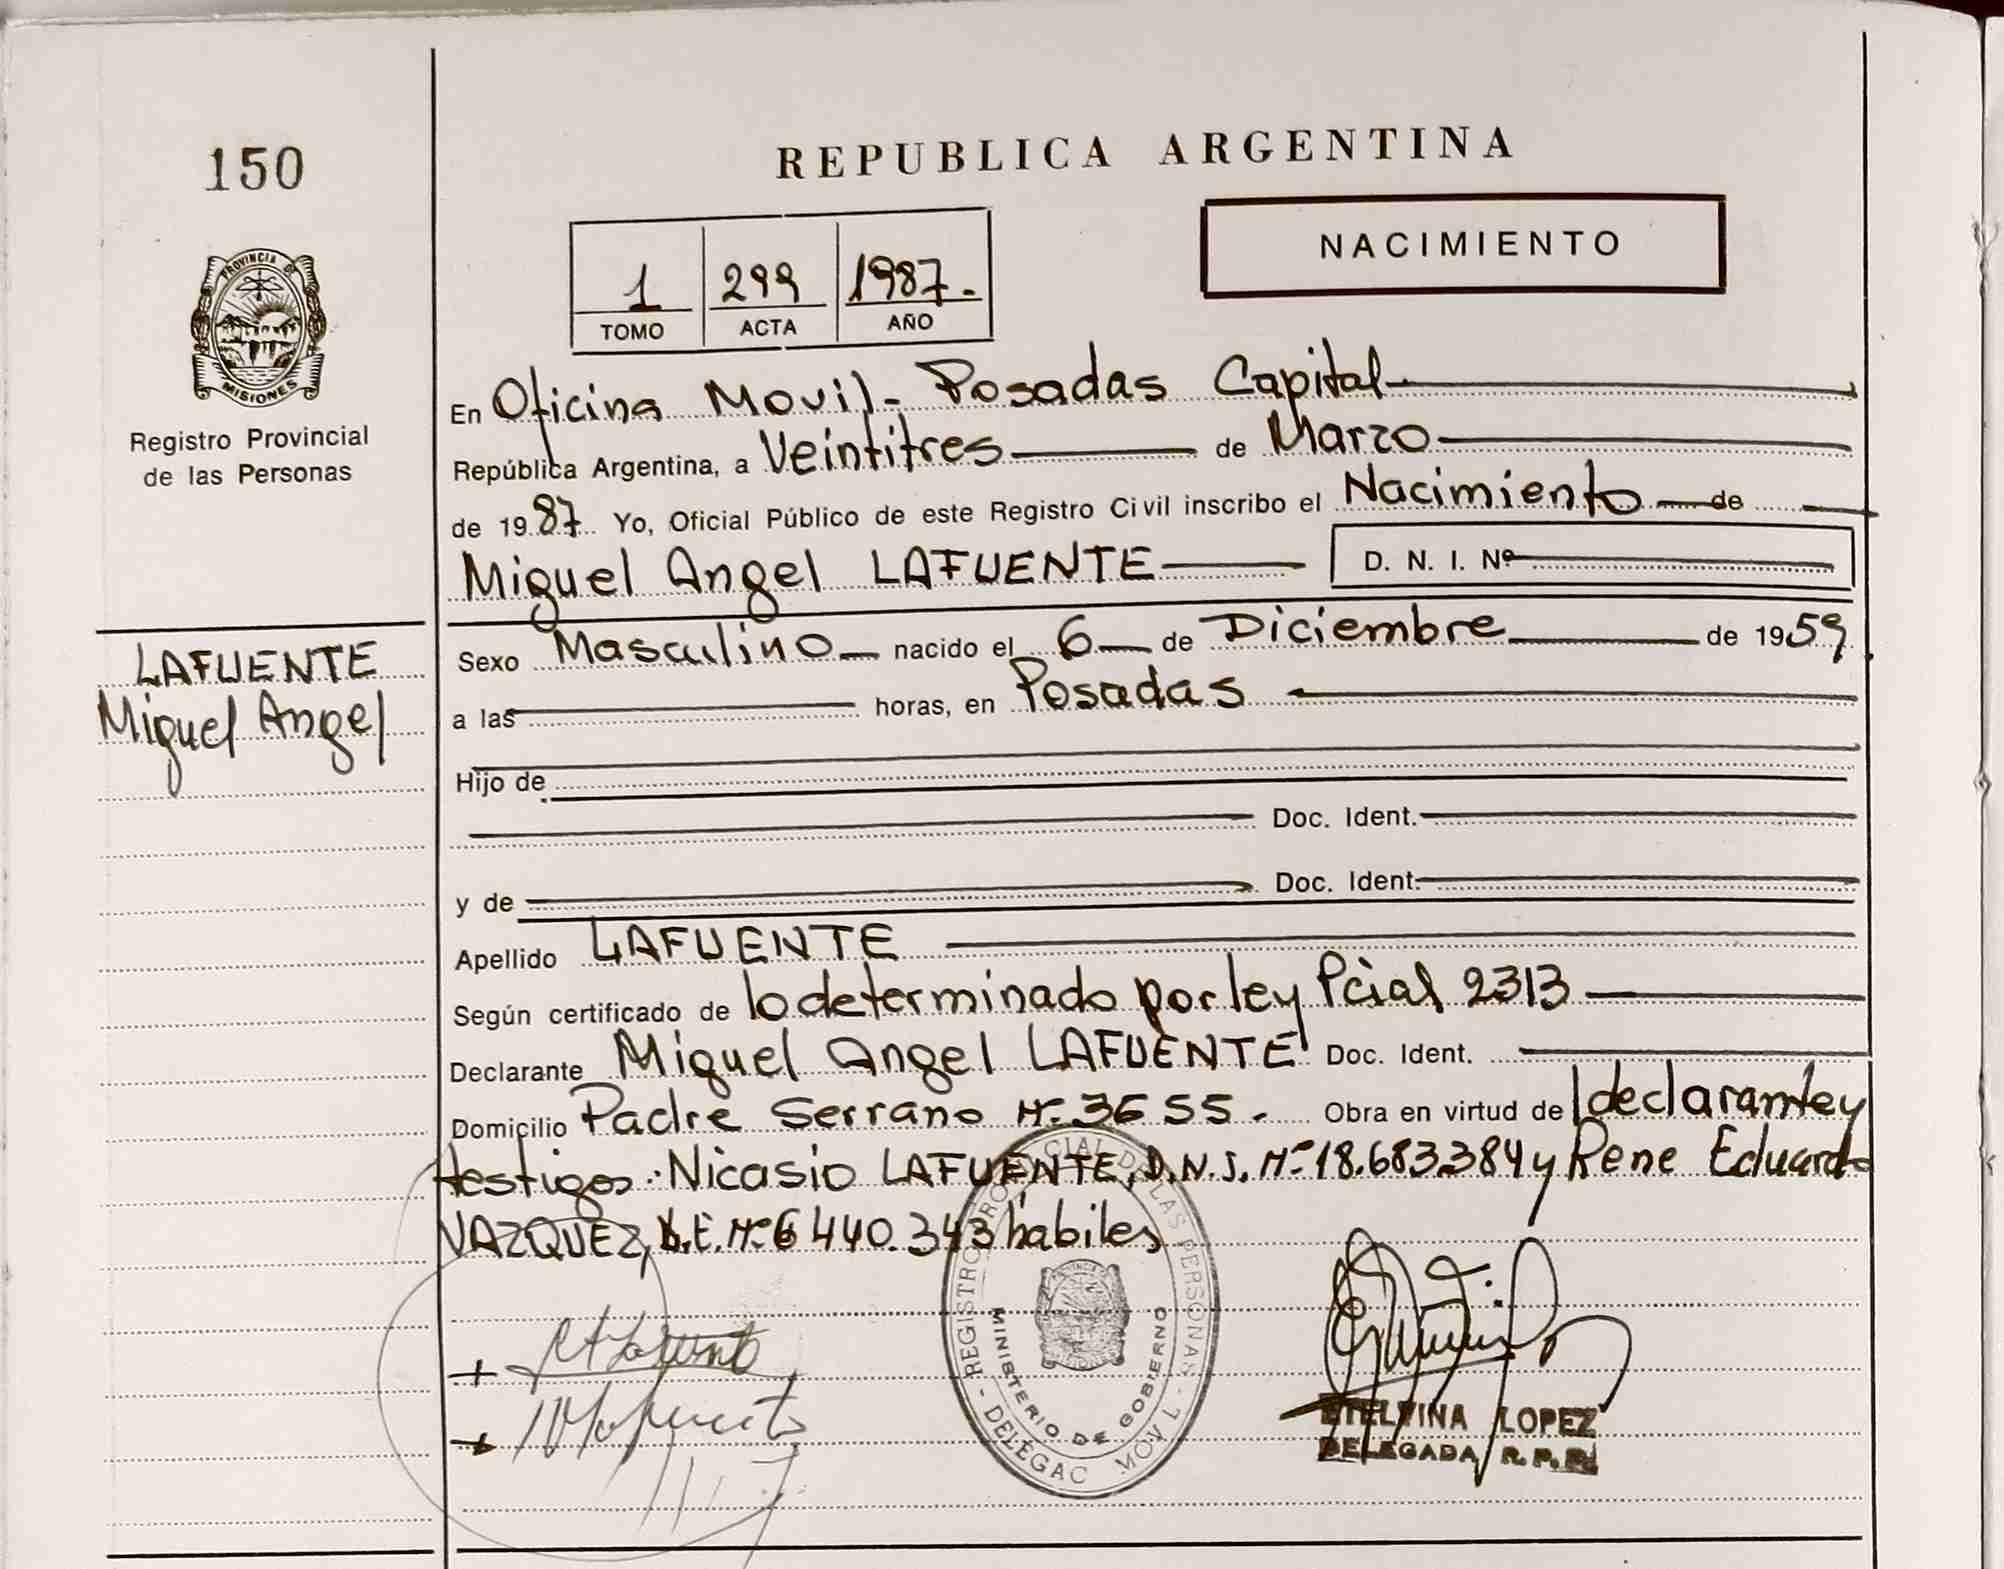 150
REPUBLICA ARGENTINA
NACIMIENTO
1 299 1987.
TOMO ACTA AÑO
PROVINCIA DE
MISIONES
Registro Provincial
de las Personas
En Oficina Movil - Posadas Capital
República Argentina, a Veintitres de Marzo
de 1987 Yo, Oficial Público de este Registro Civil inscribo el Nacimiento de
Miguel Angel LAFUENTE D. N. I. Nº
LAFUENTE
Miguel Angel
Sexo Masculino nacido el 6 de Diciembre de 1959
a las horas, en Posadas
Hijo de
Doc. Ident.
y de Doc. Ident.
Apellido LAFUENTE
Según certificado de lo determinado por ley Pcial 2313
Declarante Miguel Angel LAFUENTE Doc. Ident.
Domicilio Padre Serrano Nº 3655. Obra en virtud de declarante y
testigos: Nicasio LAFUENTE, D.N.I. Nº 18.683.384 y Rene Eduardo
VAZQUEZ, Nº 6440.343 habiles
REGISTRO PROVINCIAL DE LAS PERSONAS - DELEGAC MOVIL
MINISTERIO DE GOBIERNO
ETELVINA LOPEZ
DELEGADA R. P. P.